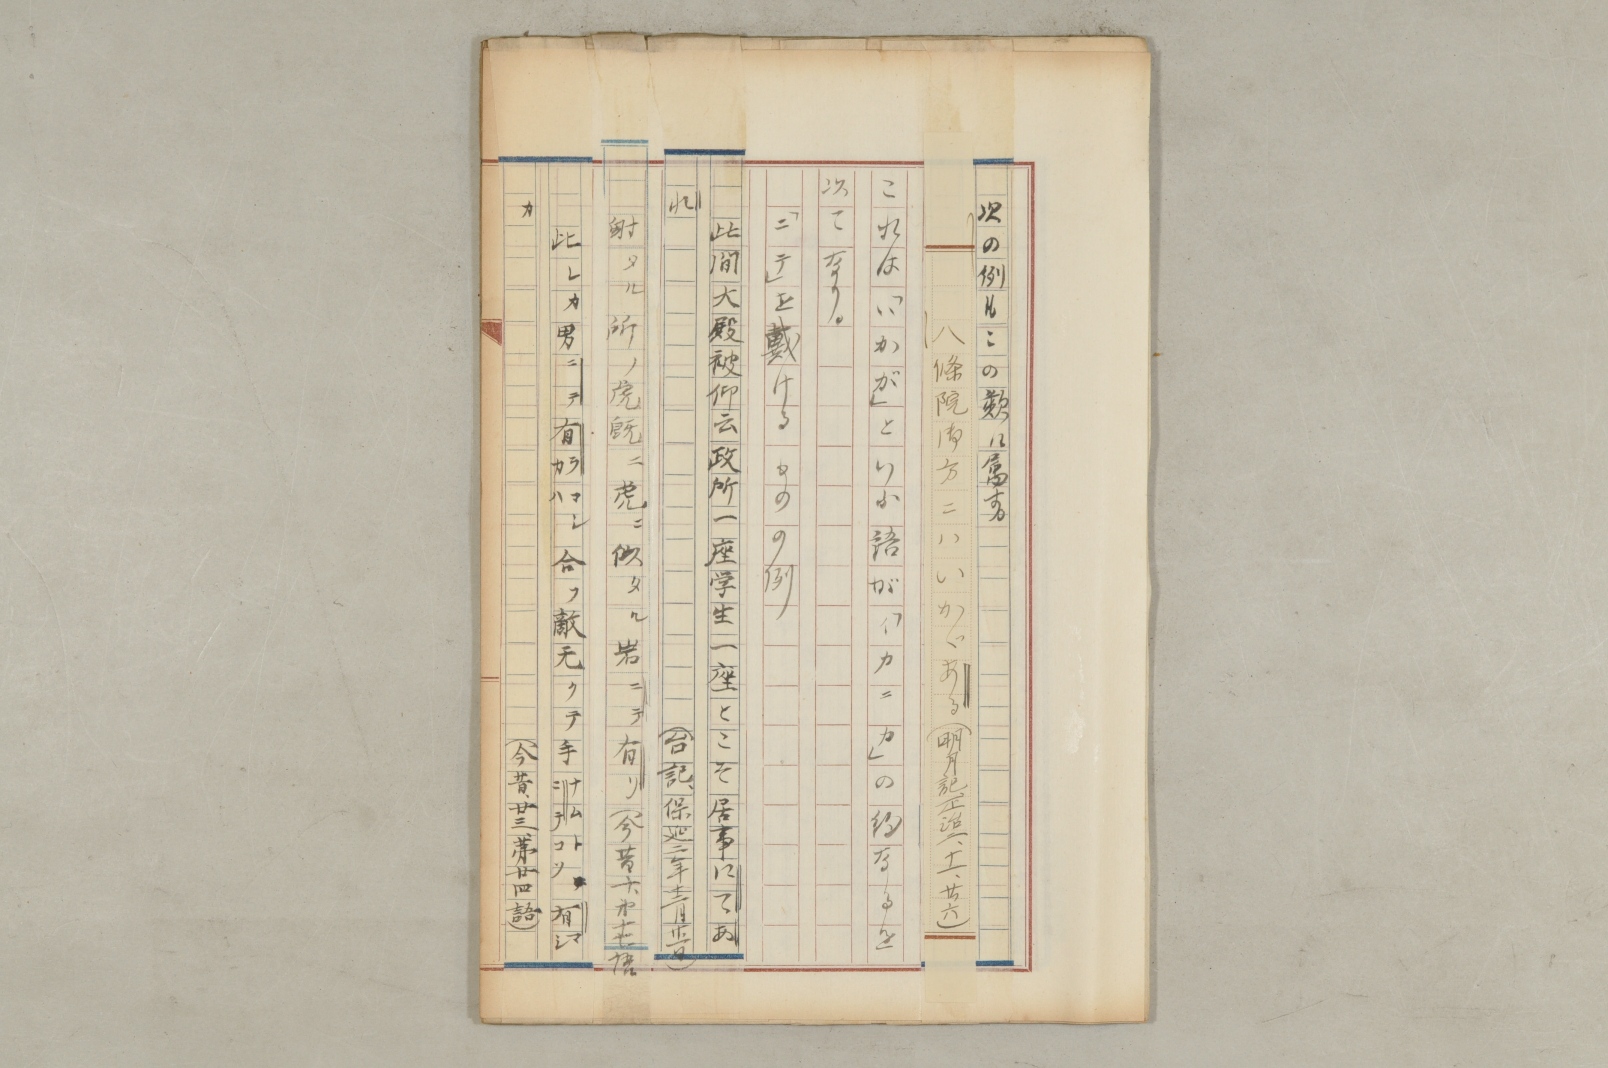 次の例もこの類に属する
八條院御方ニハいかゞある(明月記、正治二、十一、廿六)
これは「いかが」といふ語が「イカニカ」の約なるを
以てなり。
「ニテ」を戴けるものの例
此間大殿被仰云政所一座学生一座とこそ居事にてあ
れ(台記、保延二年十二月
射タル所ノ虎既ニ虎ニ似タル岩ニテ有リ(今昔十、第十七語
此レカ男ニテ有ラマシカハ合フ敵无クテ手ナムトニテコソ有マシ
カ(今昔、廿三、第廿四語)